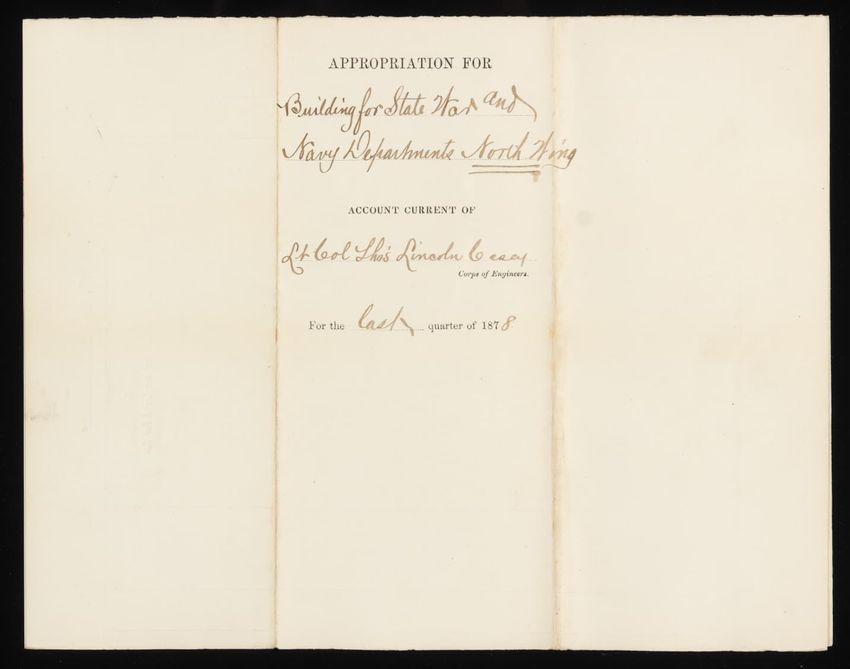 APPROPRIATION FOR
Building for State War and
Navy Departments North Wing
ACCOUNT CURRENT OF
Lt Col Tho's Lincoln Casey
Corps of Engineers.
For the last quarter of 1878